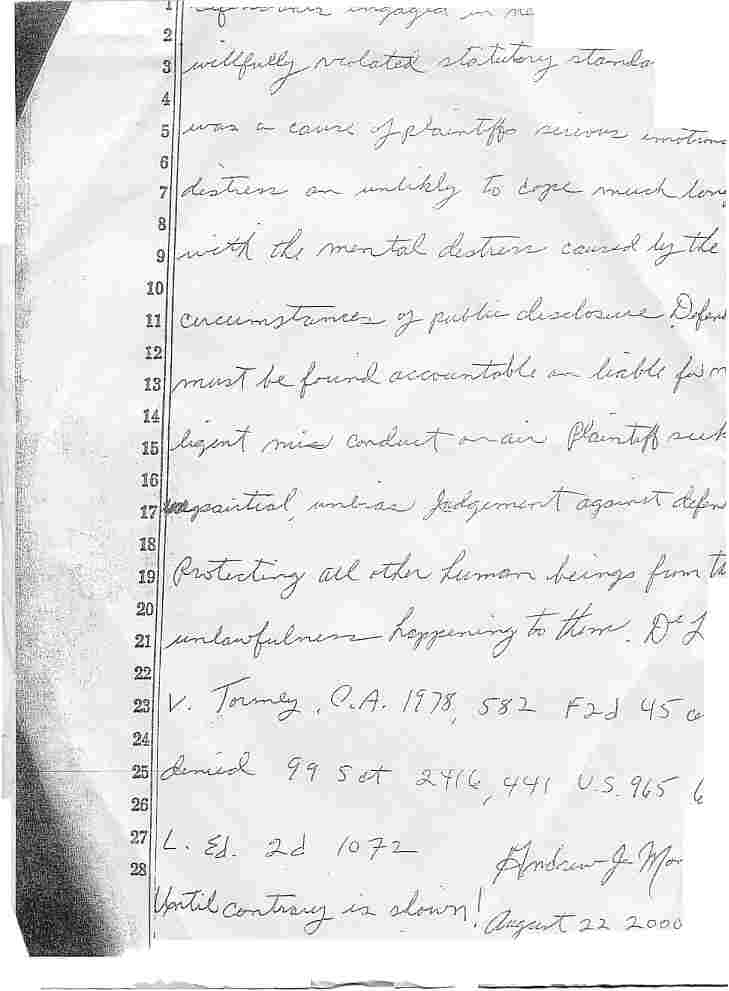 1 engaged in ne
2
3 willfully violated statutory standa
4
5 was a cause of plaintiffs serious emotiona
6
7 distress an unlikly to cope much long
8
9 with the mental distress caused by the
10
11 circumstances of public disclosure. Defend
12
13 must be found accountable an liable for n
14
15 ligent mis conduct on air Plaintiff seek
16
17 unbias Judgement against defen
18
19 Protecting all other human beings from th
20
21 unlawfulness happening to them. De L
22
23 V. Tormey, C.A. 1978, 582 F2d 45 ce
24
25 denied 99 S ct 2416, 441 U.S. 965 6
26
27 L. Ed. 2d 1072
28 Andrew J Mo
Until contrary is shown! August 22 2000